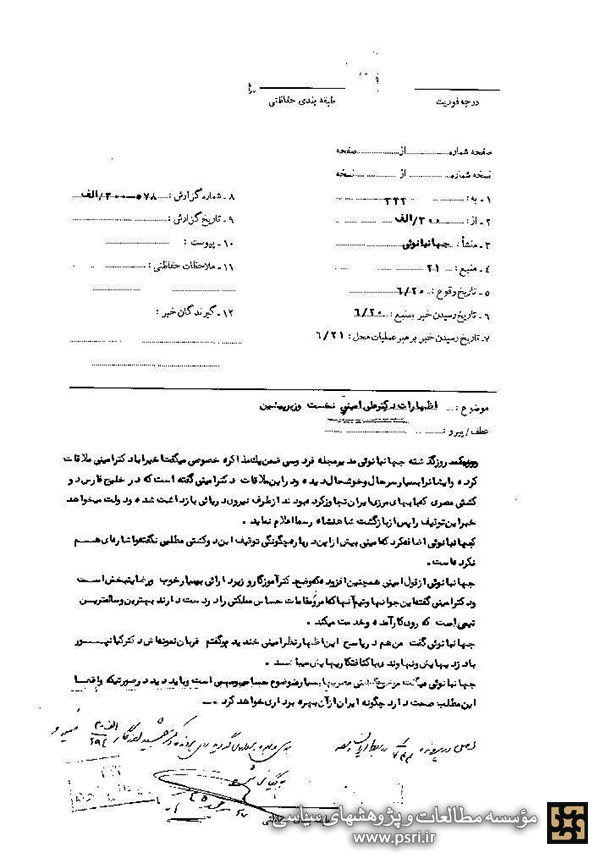 درجه فوریت
طبقه بندی حفاظتی
صفحه شماره از صفحه
نسخه شماره از نسخه
۱- به: ۳۲۲
۲- از: ۳۰۰/الف
۳- منشأ: جهانبانوئی
۴- منبع: ۲۱
۵- تاریخ وقوع: ۶/۲۰
۶- تاریخ رسیدن خبر بمنبع: ۶/۲۰
۷- تاریخ رسیدن خبر برهبر عملیات محل: ۶/۲۱
۸- شماره گزارش: ۵۷۸-۳۰۰/الف
۹- تاریخ گزارش:
۱۰- پیوست:
۱۱- ملاحظات حفاظتی:
۱۲- گیرندگان خبر:
موضوع: اظهارات دکترعلی امینی نخست وزیرپیشین
عطف/پیرو:
روز گذشته جهانبانوئی مدیر مجله فردوسی ضمن یك مذاکره خصوصی میگفت اخیرا با دکتر امینی ملاقات
کرده و ایشانرا بسیار سرحال و خوشحال دیده و در این ملاقات دکتر امینی گفته است که در خلیج فارس دو
کشتی مصری که بابهای مرزی ایران تجاوز کرده بودند از طرف نیروی دریائی بازداشت شده و دولت میخواهد
خبر این توقیف را پس از بازگشت شاهنشاه رسما اعلام نماید .
جهانبانوئی اضافه کرد که امینی بیش از این درباره چگونگی توقیف این دو کشتی مطلبی نگفته و اشاره ای هم
نکرده است .
جهانبانوئی از قول امینی همچنین افزود که وضع دکتر آموزگار و زیر دارائی بسیار خوب و رضایتبخش است
و دکتر امینی گفته این جوانها و تیم آنها که امروز مقامات حساس مملکتی را در دست دارند بهترین و سالمترین
تیمی است که روی کار آمده و خدمت میکند .
جهانبانوئی گفت من هم در پاسخ این اظهار نظر امینی خندیدم و گفتم قربان نمونه اش دکتر کیانپور
با دزدیهایش و نهاوندی با کثافتکاریهایش میباشد .
جهانبانوئی میگفت موضوع کشتی مصریها بسیار موضوع حساس و مهمی است و باید دید در صورتیکه واقعا
این مطلب صحت دارد چگونه ایران از آن بهره برداری خواهد کرد .
مؤسسه مطالعات و پژوهشهای سیاسی
www.psri.ir